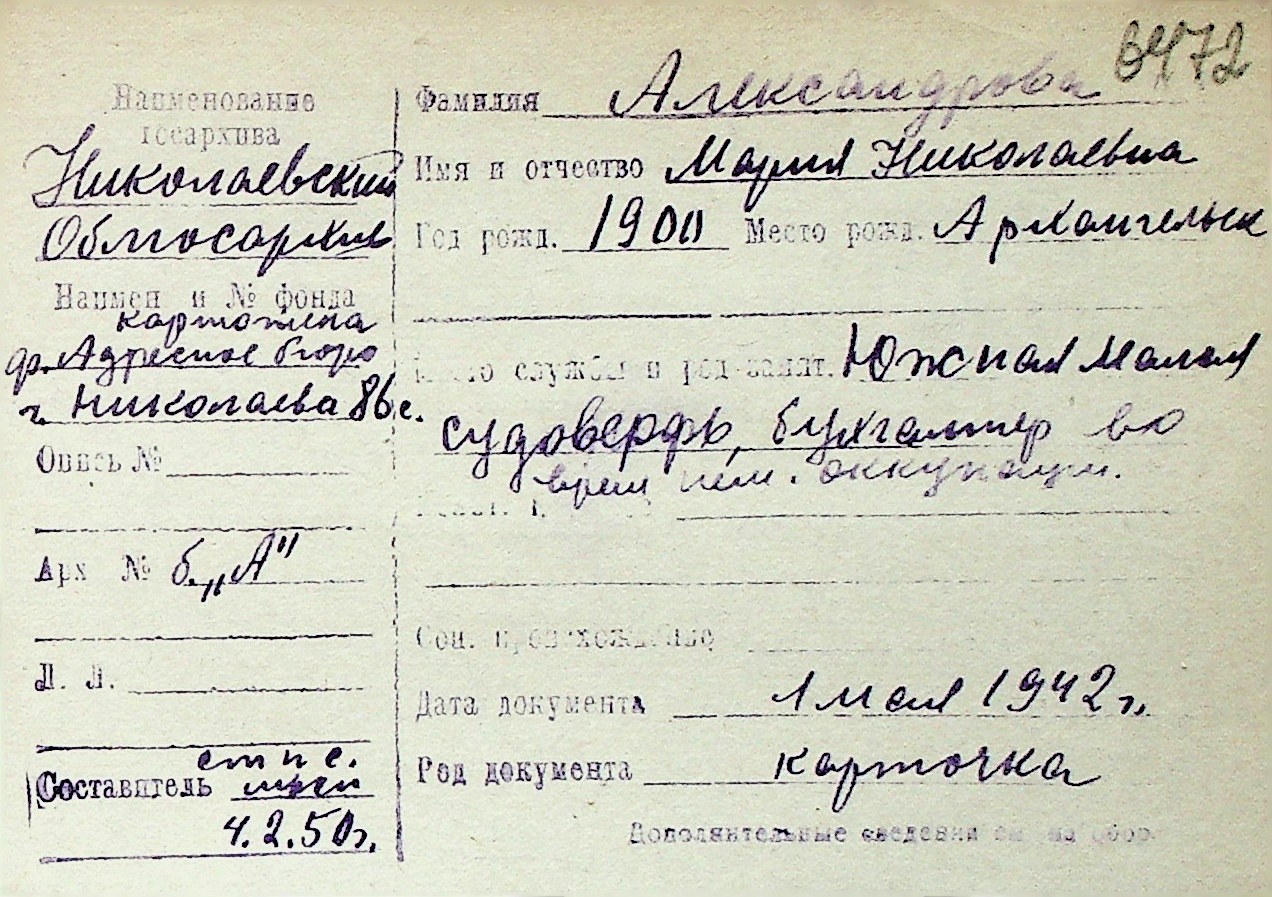 6472
Наименование
госархива
Николаевский
Облгосархив
Наимен и № фонда
картотека
ф. Адресное бюро
г. Николаева 86 с.
Опись №
Арх № б. „А"
Л. Л.
Составитель ст н с.
4.2.50 г.
Фамилия Александрова
Имя и отчество Мария Николаевна
Год рожд. 1900 Место рожд. Архангельск
службы и род занят. Южная Малая
судоверфь, бухгалтер во
врем нем. оккупации.
Соц. происхождение
Дата документа 1 мая 1942 г.
Род документа карточка
Дополнительные сведения см на обор.